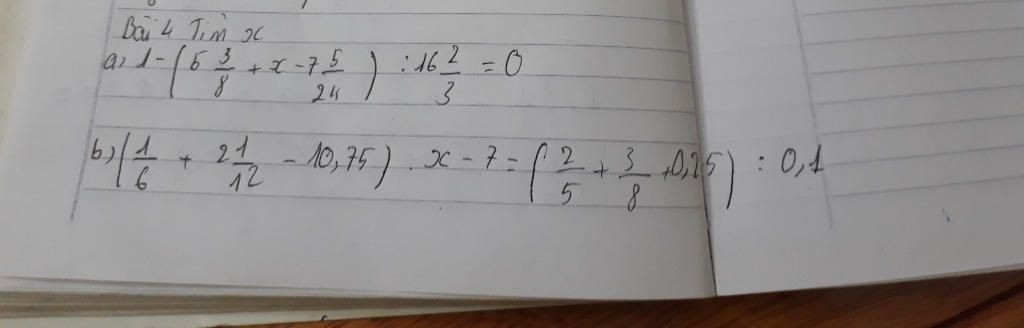 Bài 4 Tìm x
a, 1 - (5 3/8 + x - 7 5/24) : 16 2/3 = 0
b) (1/6 + 2 1/12 - 10,75) . x - 7 = (2/5 + 3/8 + 0,25) : 0,1